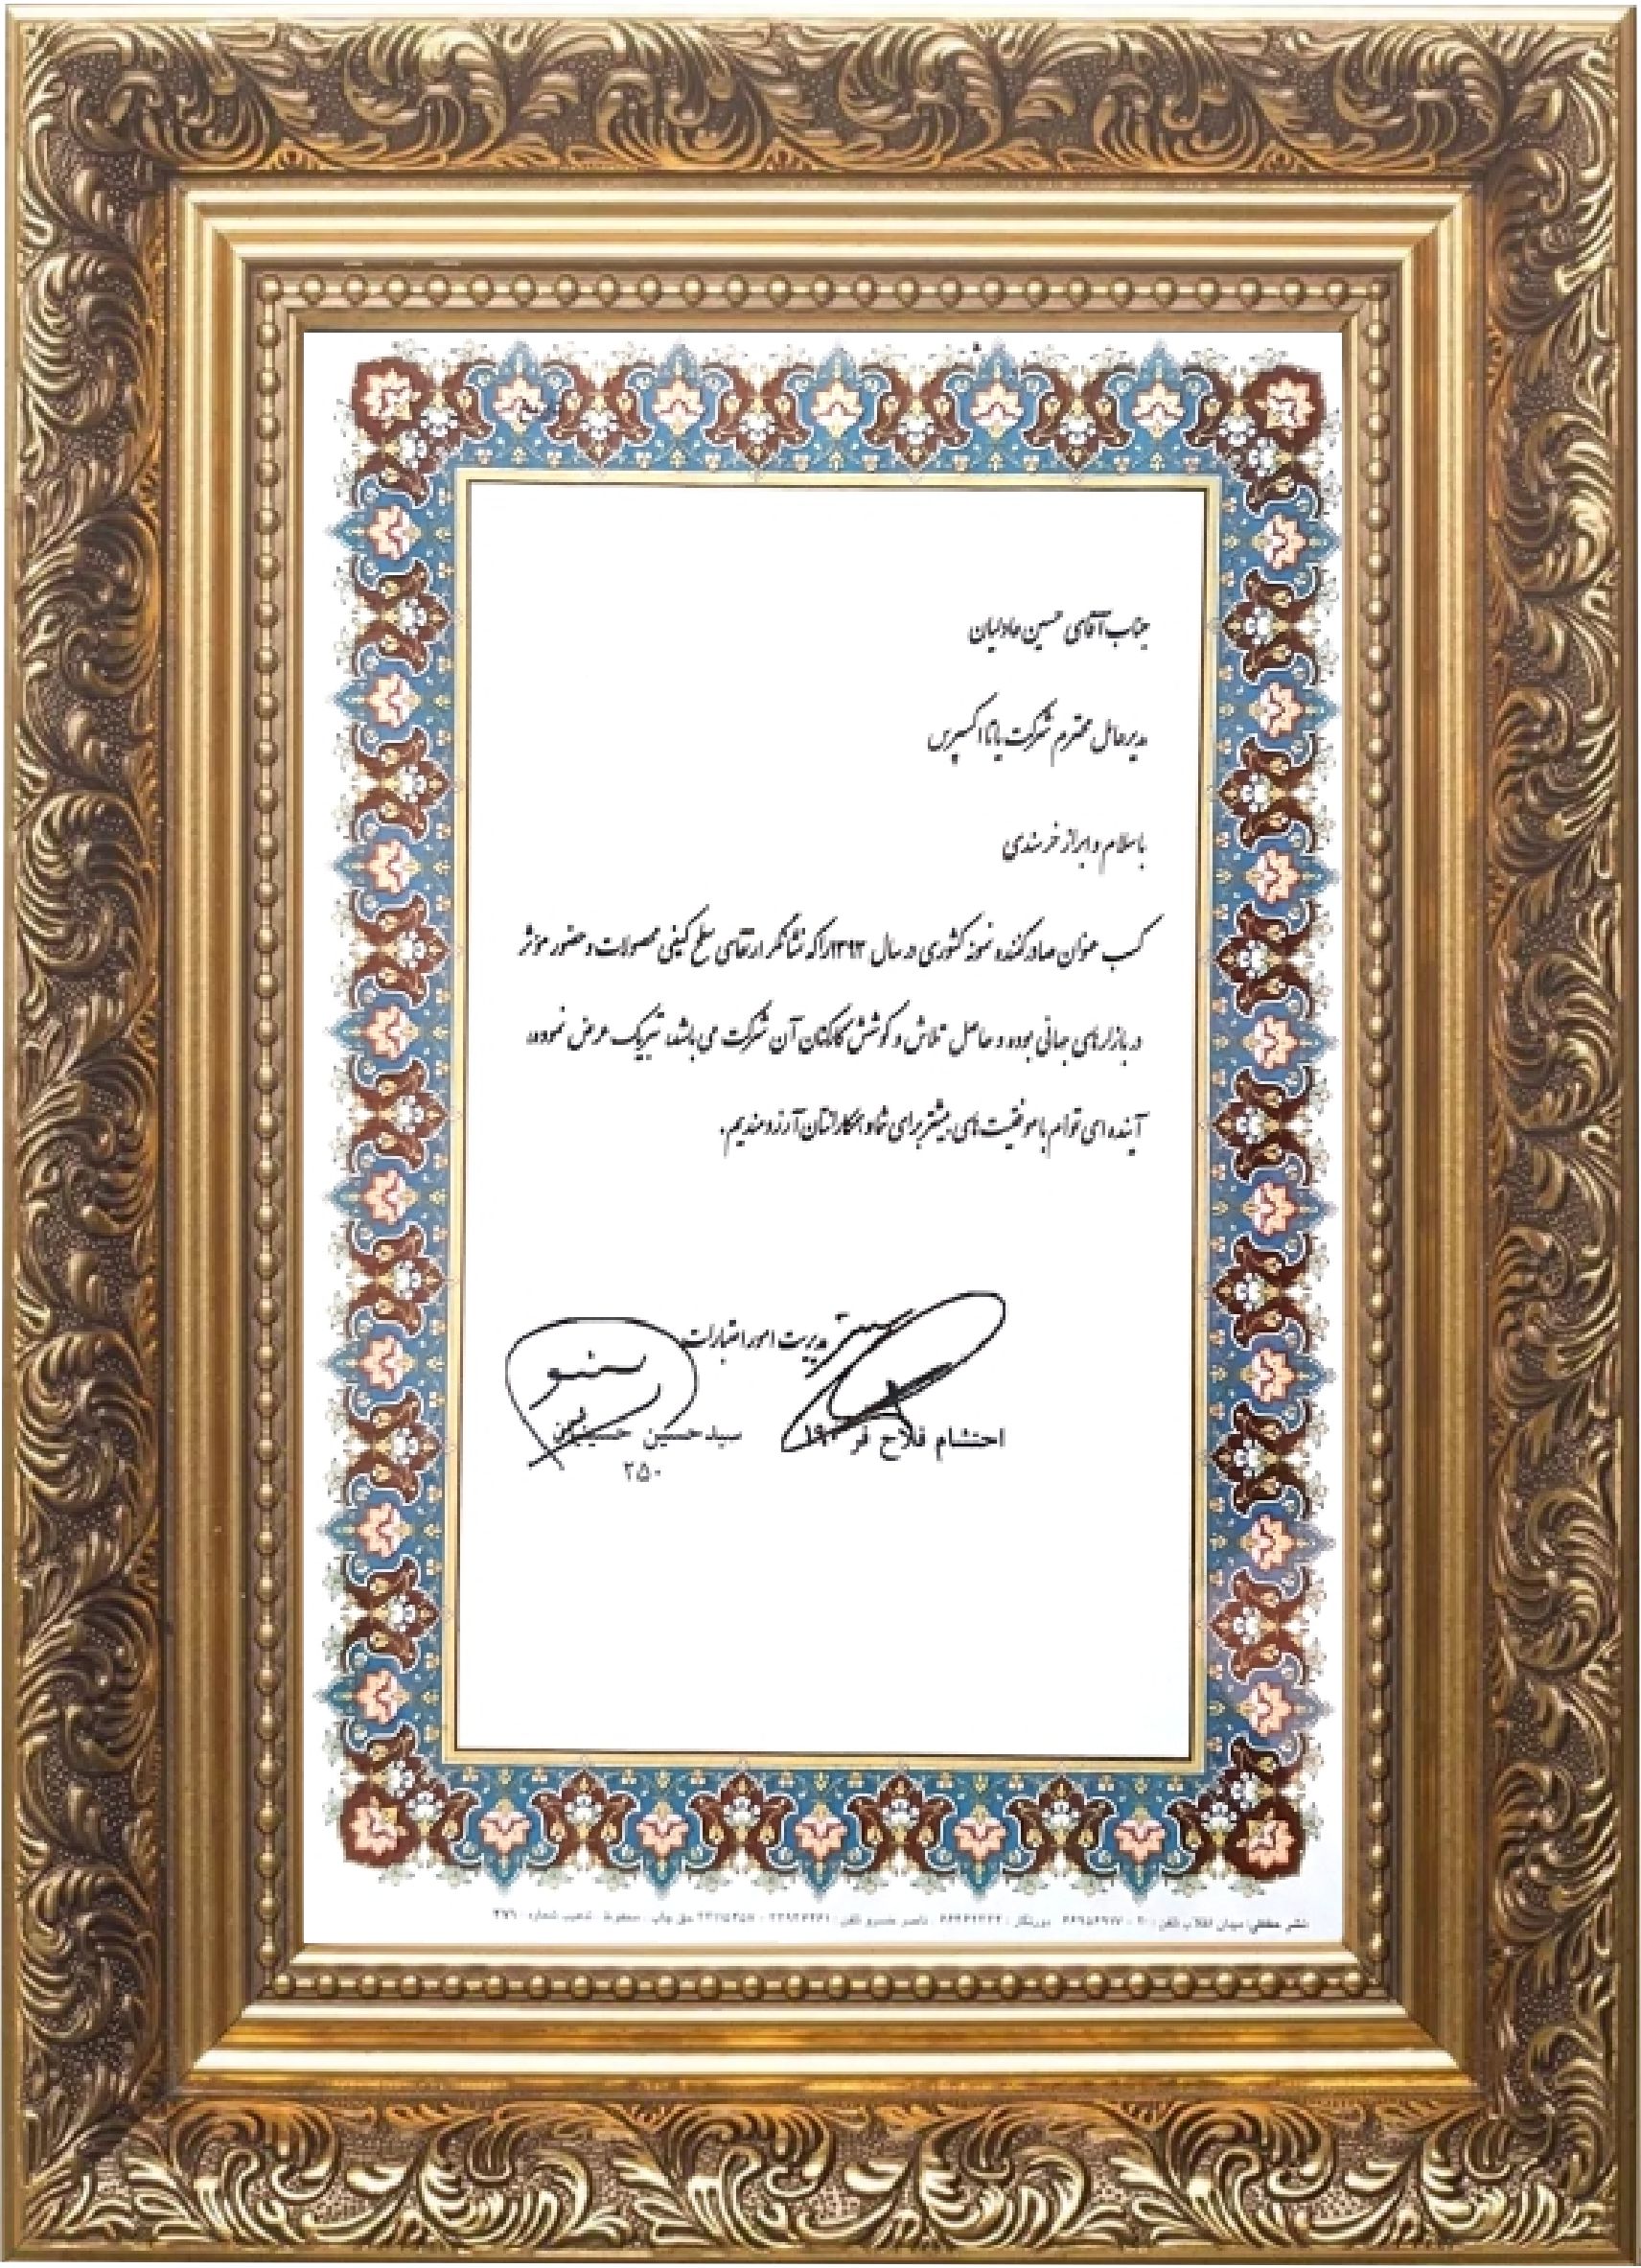 جناب آقای حسین عادلیان
مدیرعامل محترم شرکت یاتا اکسپرس
با سلام و ابراز خرسندی
کسب عنوان صادرکننده نمونه کشوری در سال ۱۳۹۳ را که نشانگر ارتقای سطح کیفی محصولات و حضور موثر
در بازارهای جهانی بوده و حاصل تلاش و کوشش کارکنان آن شرکت می باشد، تبریک عرض نموده،
آینده ای توام با موفقیت های بیشتر برای شما و همکارانتان آرزومندیم.
مدیریت امور اعتبارات
احتشام فلاح فر
سید حسین
۲۵۰